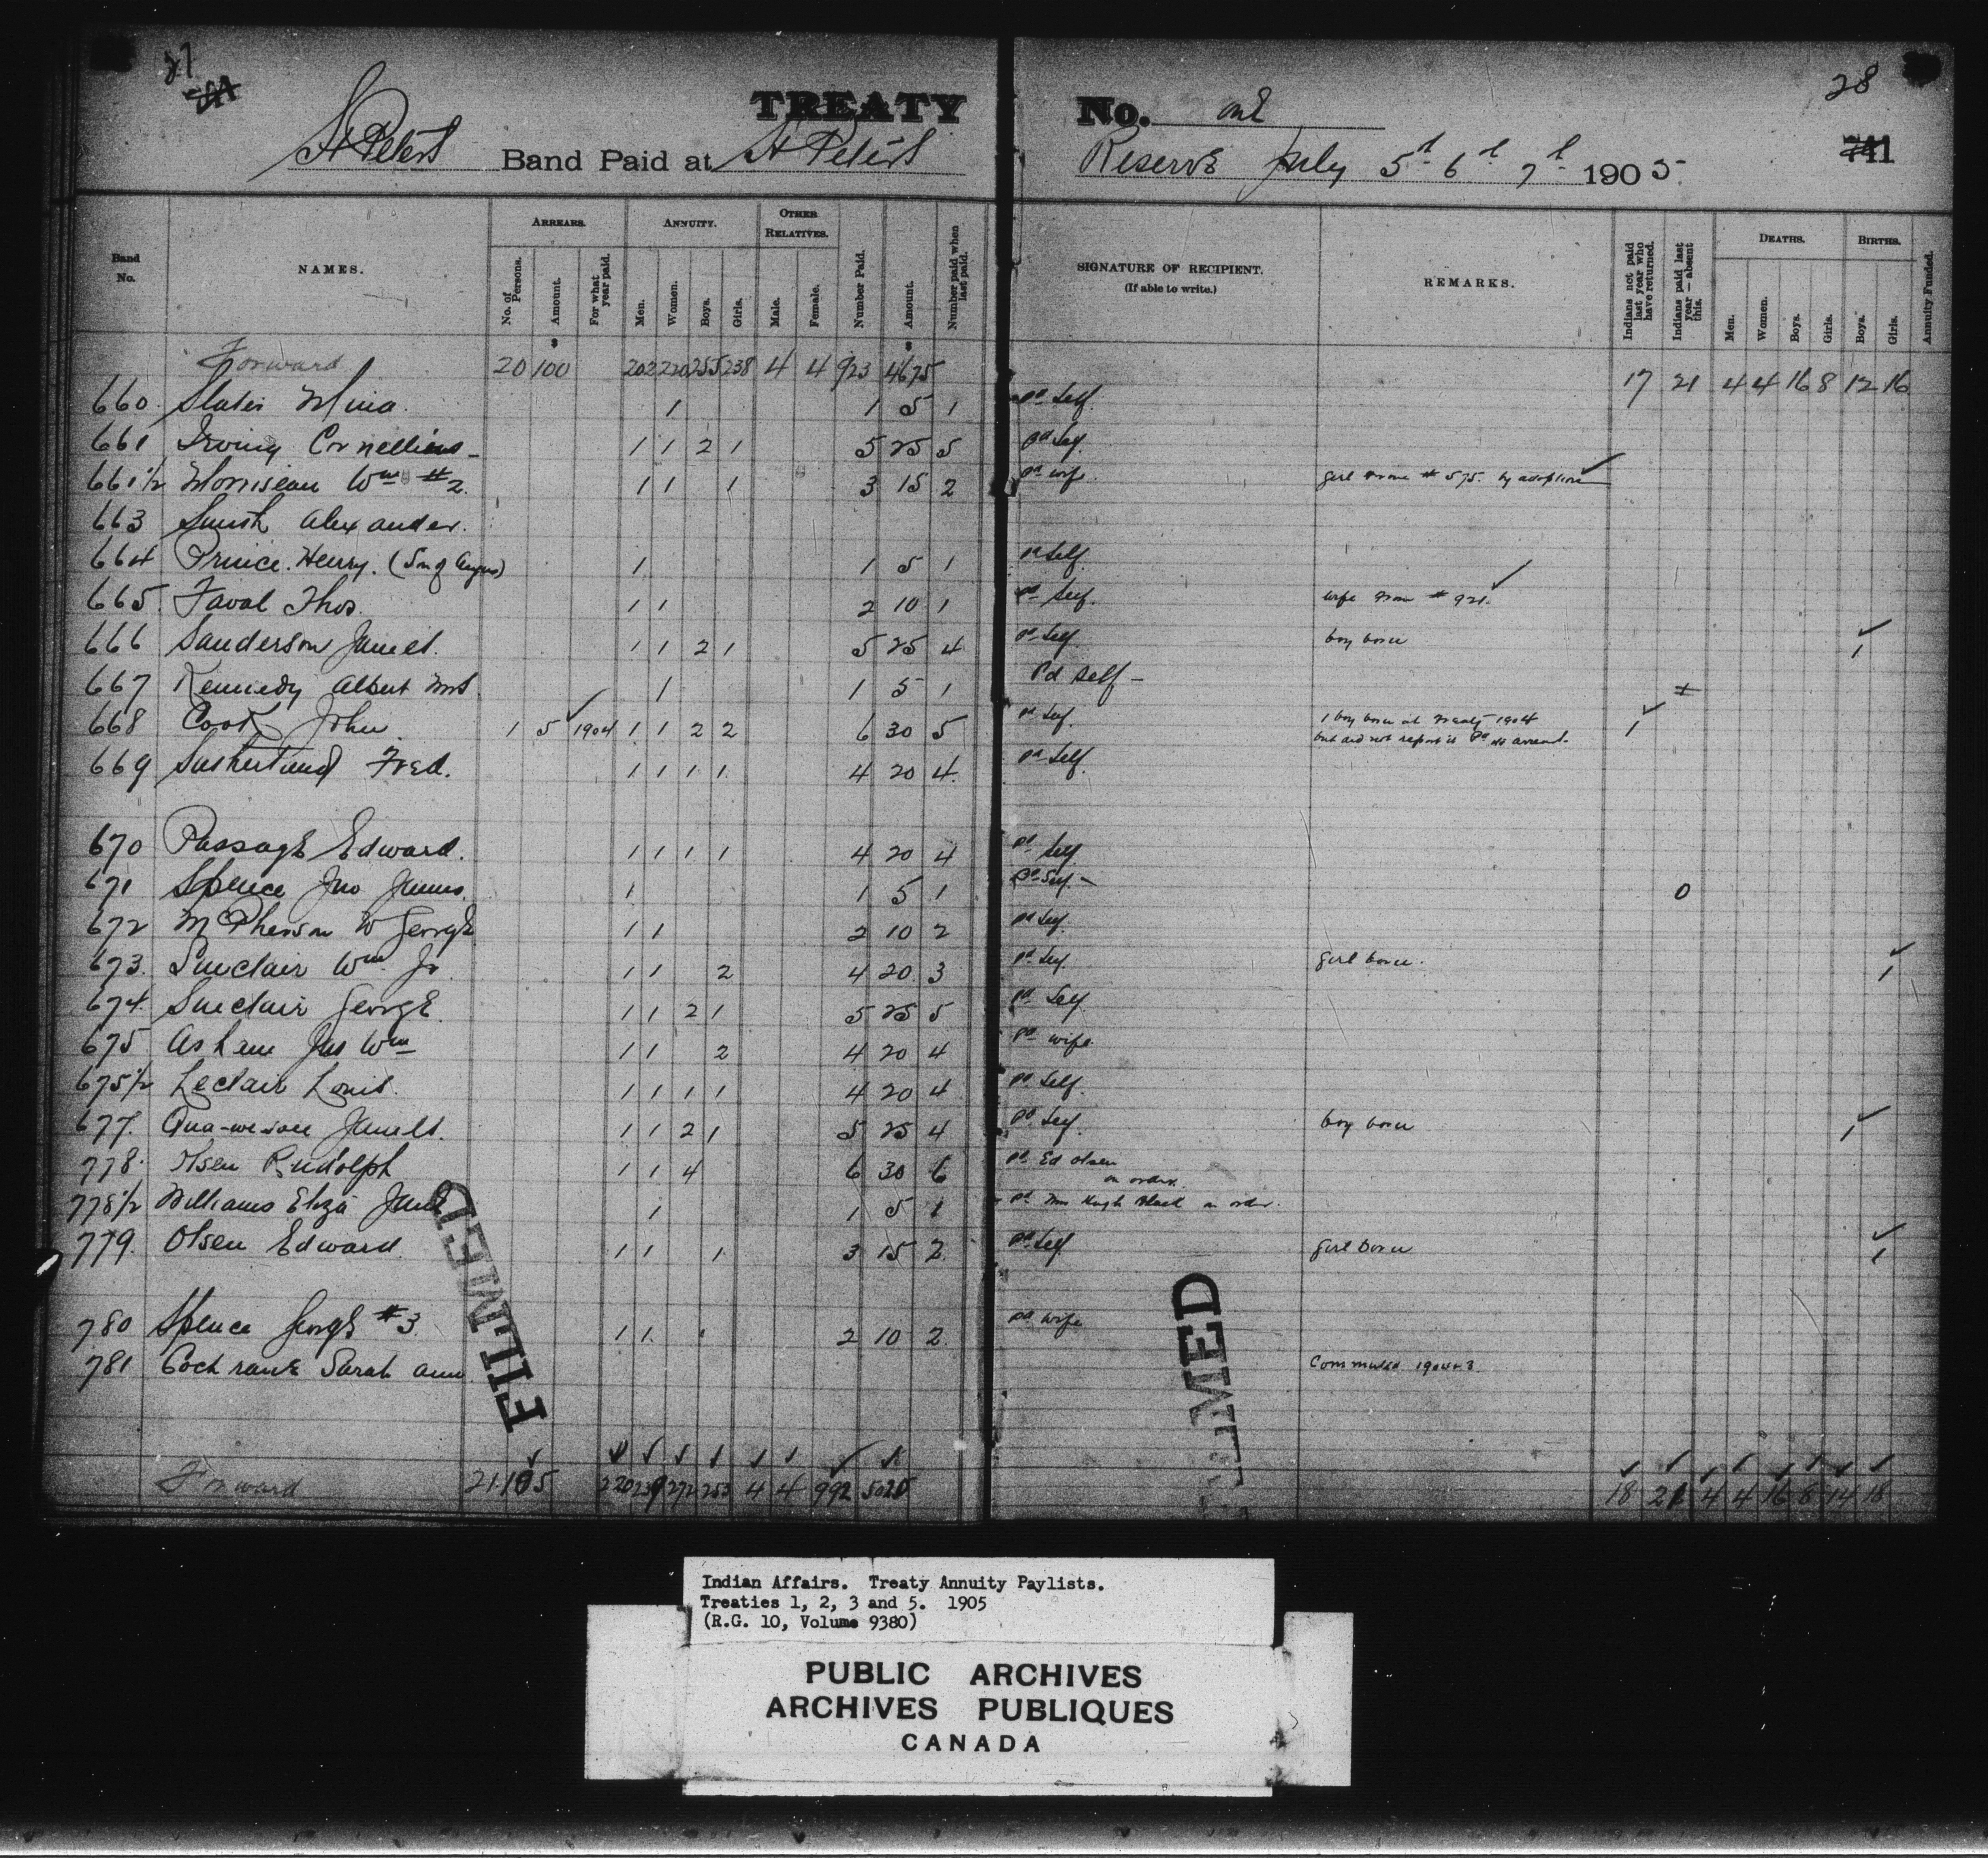 27
28
TREATY No. one
St Peters Band Paid at St Peters Reserve July 5th 6th 7th 1905
741
Band No. NAMES. ARREARS. No. of Persons. Amount. For what year paid. ANNUITY. Men. Women. Boys. Girls. OTHER RELATIVES. Male. Female. Number Paid. Amount. Number paid when last paid. SIGNATURE OF RECIPIENT. (If able to write.) REMARKS. Indians not paid last year who have returned. Indians paid last year—absent this. DEATHS. Men. Women. Boys. Girls. BIRTHS. Boys. Girls. Annuity Funded.
$ $
Forward 20 100 202 220 255 238 4 4 923 4675 17 21 4 4 16 8 12 16
660 Slater Mina 1 1 5 1 pd Self
661 Irving Cornellious 1 1 2 1 5 25 5 pd Self
661½ Morriseau Wm #2 1 1 1 3 15 2 pd wife girl from # 575 by adoption ✓
663 Smith Alexander.
664 Prince Henry. (Son of Angus) 1 1 5 1 pd Self
665 Faval Thos. 1 1 2 10 1 pd Self. wife from # 921 ✓
666 Sanderson James. 1 1 2 1 5 25 4 pd Self boy born ✓ 1
667 Kennedy Albert Mrs 1 1 5 1 Pd Self –
668 Cook John 1 5 ✓ 1904 1 1 2 2 6 30 5 pd Self 1 boy born at Treaty 1904 ✓ 1
but did not report it Pd as arrears.
669 Sutherland Fred. 1 1 1 1 4 20 4 pd Self
670 Passage Edward. 1 1 1 1 4 20 4 pd Self
671 Spence Jno James. 1 1 5 1 Pd Self – 0
672 McPherson W George 1 1 2 10 2 pd Self
673 Sinclair Wm Jr 1 1 2 4 20 3 pd Self girl born. ✓ 1
674 Sinclair George 1 1 2 1 5 25 5 pd Self
675 Asham Jas Wm 1 1 2 4 20 4 pd wife
675½ Leclair Louis. 1 1 1 1 4 20 4 pd Self
677 James. 1 1 2 1 5 25 4 pd Self boy born ✓ 1
778 Olsen Rudolph 1 1 4 6 30 6 pd Ed Olsen
on order.
778½ Williams Eliza Jane 1 1 5 1 pd Mrs Hugh Black on order.
779 Olsen Edward 1 1 1 3 15 2 pd Self girl born ✓ 1
780 Spence George #3 1 1 2 10 2 pd wife
781 Cochrane Sarah Ann Commuted
Forward 21 105 220 239 272 253 4 4 992 5025 18 21 4 4 16 8 14 18
FILMED
FILMED
Indian Affairs. Treaty Annuity Paylists.
Treaties 1, 2, 3 and 5. 1905
(R.G. 10, Volume 9380)
PUBLIC ARCHIVES
ARCHIVES PUBLIQUES
CANADA